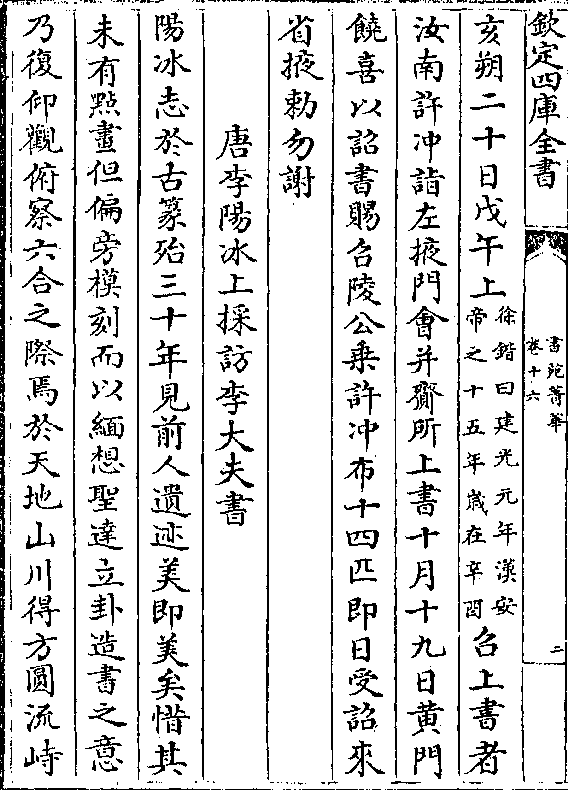 欽定四庫全書
書苑菁華
卷十六
二
亥朔二十日戊午上
徐鍇曰建光元年漢安
帝之十五年歲在辛酉
召上書者
汝南許冲詣左掖門會并齎所上書十月十九日黄門
饒喜以詔書賜召陵公乗許冲布十四匹即日受詔來
省掖勅勿謝
唐李陽冰上採訪李大夫書
陽冰志於古篆殆三十年見前人遺迹美即美矣惜其
未有㸃畫但偏旁模刻而以緬想聖達立卦造書之意
乃復仰觀俯察六合之際焉於天地山川得方圓流峙